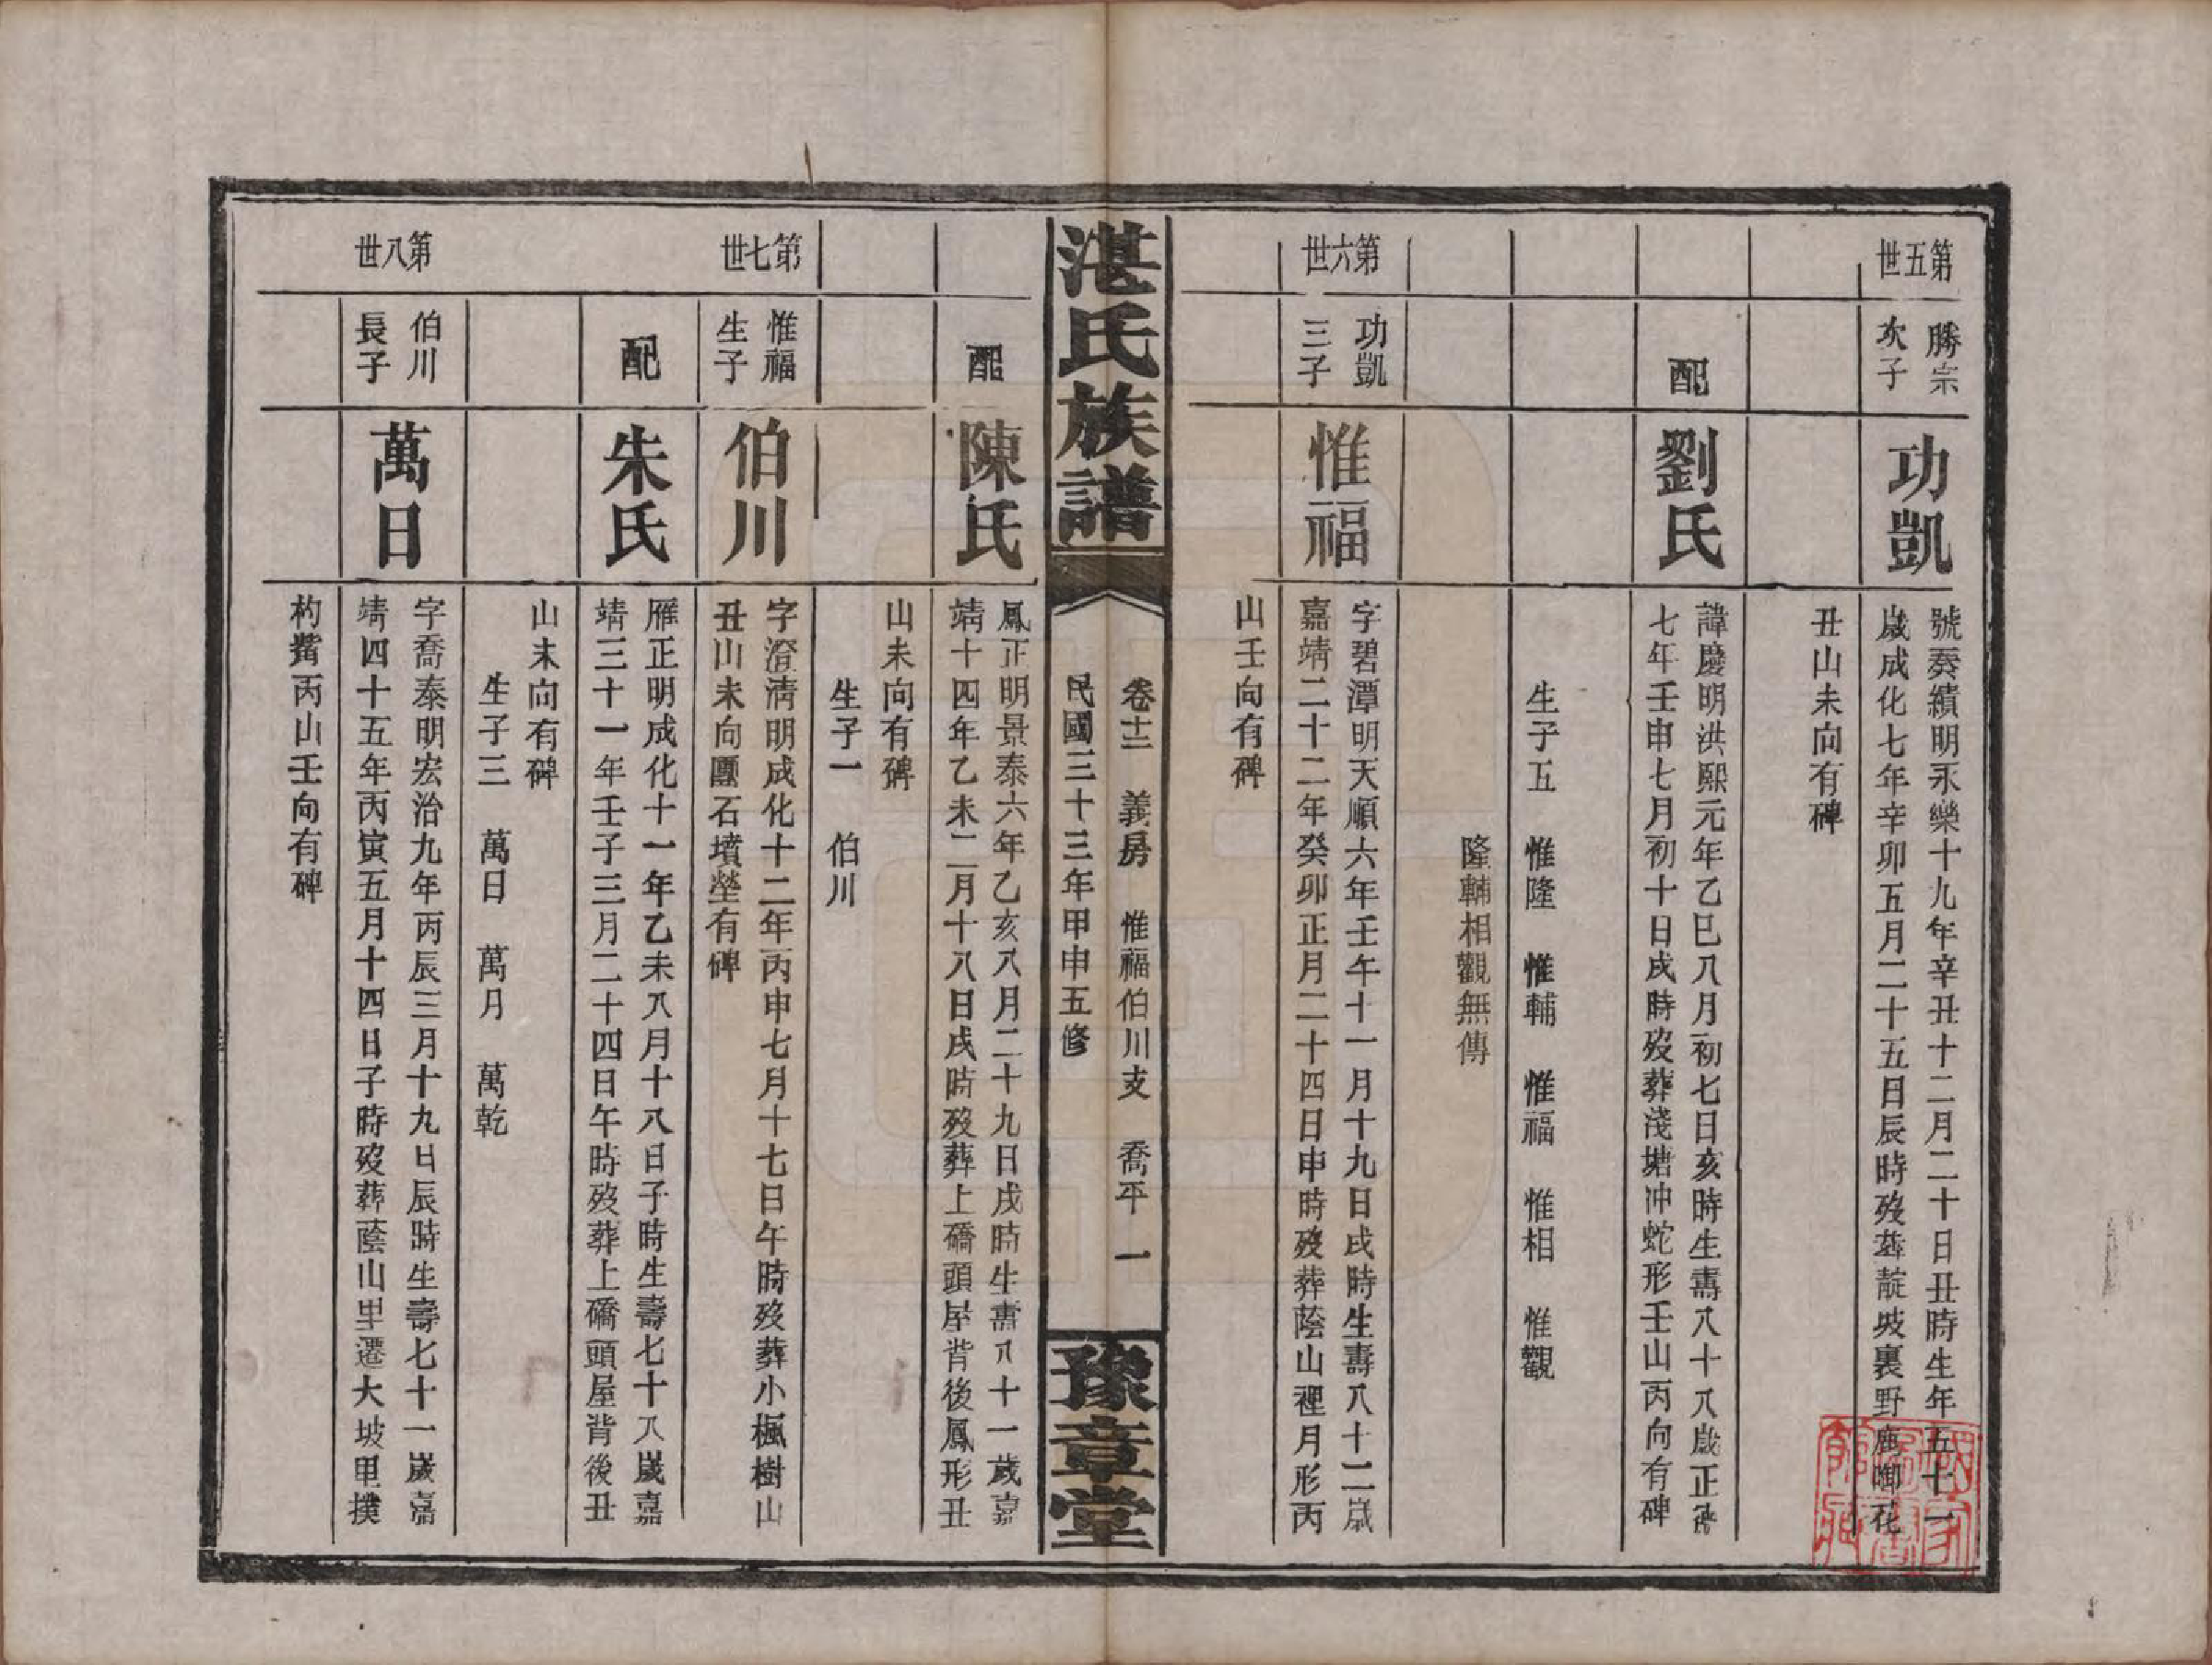 第五世
勝宗
次子
功凱
號奏績明永樂十九年辛丑十二月二十日丑時生年五十一
歲成化七年辛卯五月二十五日辰時歿葬靛坡裏野鹿啣花
丑山未向有碑
配
劉氏
諱慶明洪熙元年乙巳八月初七日亥時生壽八十八歲正德
七年壬申七月初十日戌時歿葬淺塘沖蛇形壬山丙向有碑
生子五 惟隆 惟輔 惟福 惟相 惟觀
隆輔相觀無傳
第六世
功凱
三子
惟福
字碧潭明天順六年壬午十一月十九日戌時生壽八十二歲
嘉靖二十二年癸卯正月二十四日申時歿葬蔭山裡月形丙
山壬向有碑
湛氏族譜
卷十二 義房 惟福伯川支 喬平 一
民國三十三年甲申五修
豫章堂
配
陳氏
鳳正明景泰六年乙亥八月二十九日戌時生壽八十一歲嘉
靖十四年乙未二月十八日戌時歿葬上礄頭屋背後鳳形丑
山未向有碑
生子一 伯川
第七世
惟福
生子
伯川
字澄清明成化十二年丙申七月十七日午時歿葬小楓樹山
丑山未向團石墳塋有碑
配
朱氏
雁正明成化十一年乙未八月十八日子時生壽七十八歲嘉
靖三十一年壬子三月二十四日午時歿葬上礄頭屋背後丑
山未向有碑
生子三 萬日 萬月 萬乾
第八世
伯川
長子
萬日
字喬泰明宏治九年丙辰三月十九日辰時生壽七十一歲嘉
靖四十五年丙寅五月十四日子時歿葬蔭山里遷大坡里撲
杓觜丙山壬向有碑